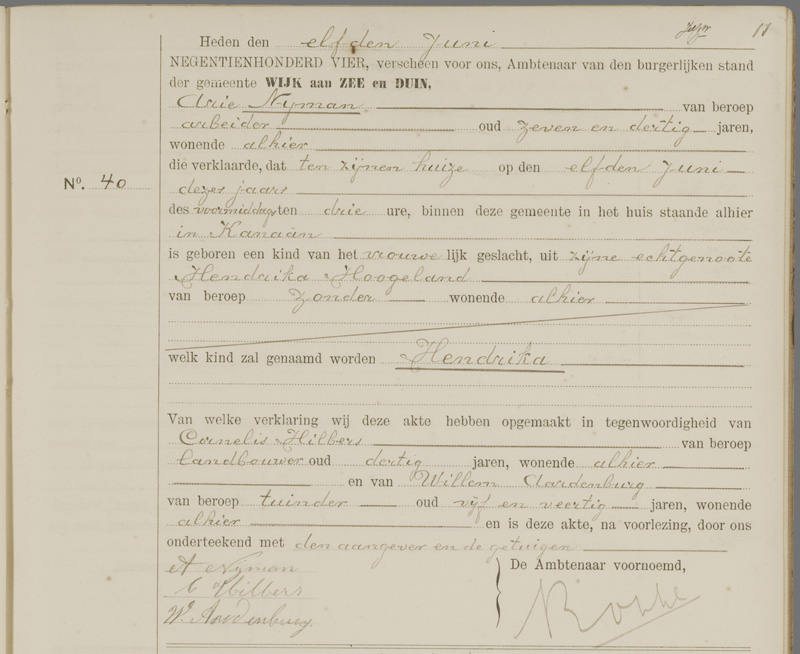 11
Heden den elfden Juni
NEGENTIENHONDERD VIER, verscheen voor ons, Ambtenaar van den burgerlijken stand
der gemeente WIJK aan ZEE en DUIN,
Arie Nyman van beroep
arbeider oud zeven en dertig jaren,
wonende alhier
die verklaarde, dat ten zijnen huize op den elfden Juni
No. 40
dezes jaars
des voormiddags ten drie ure, binnen deze gemeente in het huis staande alhier
in Kanaän
is geboren een kind van het vrouwe lijk geslacht, uit zijne echtgenoote
Hendrika Hoogeland
van beroep zonder wonende alhier
welk kind zal genaamd worden Hendrika
Van welke verklaring wij deze akte hebben opgemaakt in tegenwoordigheid van
Cornelis Hilbers van beroep
landbouwer oud dertig jaren, wonende alhier
en van Willem Aardenburg
van beroep tuinder oud vijf en veertig jaren, wonende
alhier en is deze akte, na voorlezing, door ons
onderteekend met den aangever en de getuigen
A Nyman De Ambtenaar voornoemd,
C Hilbers
W. Aardenburg